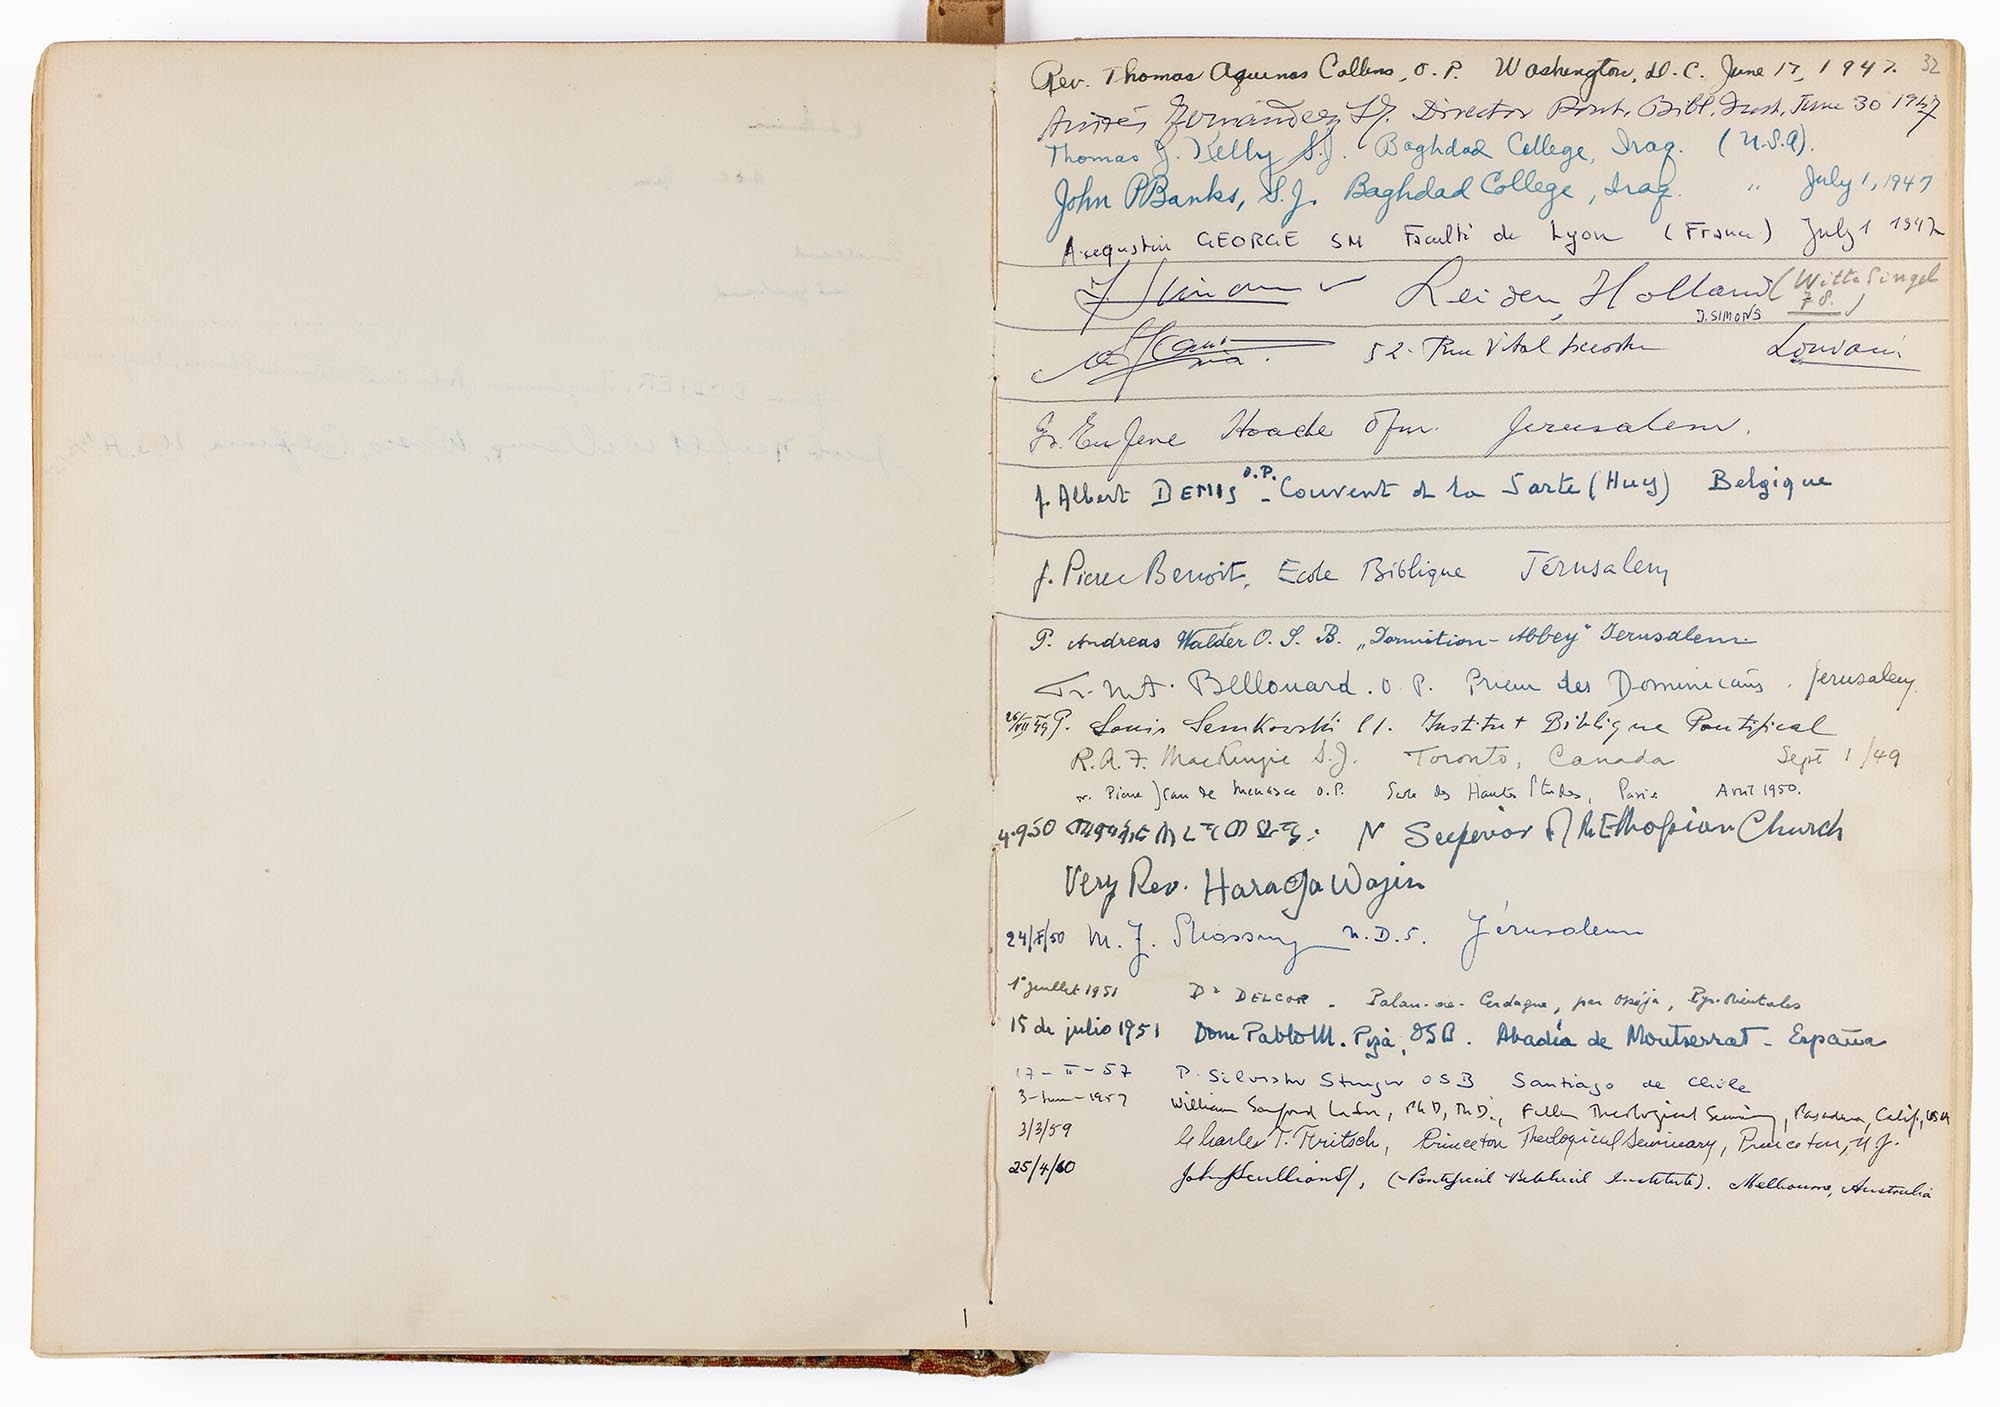 32
Rev. Thomas Aquinas Collins, O. P. Washington, D. C. June 17, 1947.
Andrés Fernández S.J. Director Pont. Bibl. Inst. June 30 1947
Thomas J. Kelly S.J. Baghdad College, Iraq. (U.S.A).
John P Banks, S.J. Baghdad College, Iraq. " July 1, 1947
Augustin GEORGE SM Faculté de Lyon (France) July 1 1947
J. Simons Leiden, Holland (Witte Singel 78.)
J. SIMONS
52. Rue Vital Louvain
Fr. Eugene Hoade Ofm. Jerusalem.
f. Albert DEMIS O.P. - Couvent de la Sarte (Huy) Belgique
f. Pierre Benoit, Ecole Biblique Jérusalem
P. Andreas Walder O. S. B. „Dormition-Abbey" Jerusalem
Fr. M A. Bellouard. O. P. Prieur des Dominicains. Jerusalem.
26/VII 49 P. Louis Semkowski SJ. Institut Biblique Pontifical
R. A. F. MacKenzie S.J. Toronto, Canada Sept 1/49
fr. Pierre Jean de Menasce O.P. Ecole des Hautes Etudes, Paris Avril 1950.
4.9.50 Superior of the Ethopian Church
Very Rev. Haraga Wojin
24/X/50 M. J. n. D. S. Jérusalem
1° juillet 1951 Dr DELCOR - Palau-de-Cerdagne, par Osséja, Pyr. Orientales
15 de julio 1951 Dom Pablo M. OSB. Abadía de Montserrat - España
17 - II - 57 P. Silvester Stenger OSB Santiago de Chile
1957 William Sanford LaSor, Ph D, Th. D., Fuller Theological Seminary, Pasadena, Calif., USA
3/3/59 Charles T. Fritsch, Princeton Theological Seminary, Princeton, N. J.
25/4/60 John J Scullion SJ, (Pontifical Biblical Institute). Melbourne, Australia